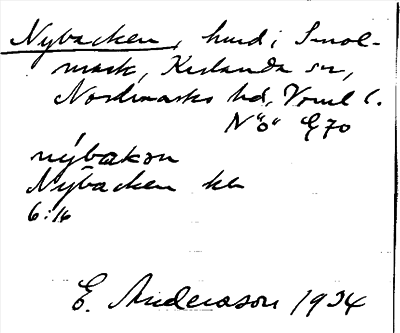 Nybacken, hmd i Smol-
mark, Karlanda sn,
Nordmarks hd, Vrml l.
N"ö" G70
nybakon
Nybacken kb
6:16
E. Andersson 1934